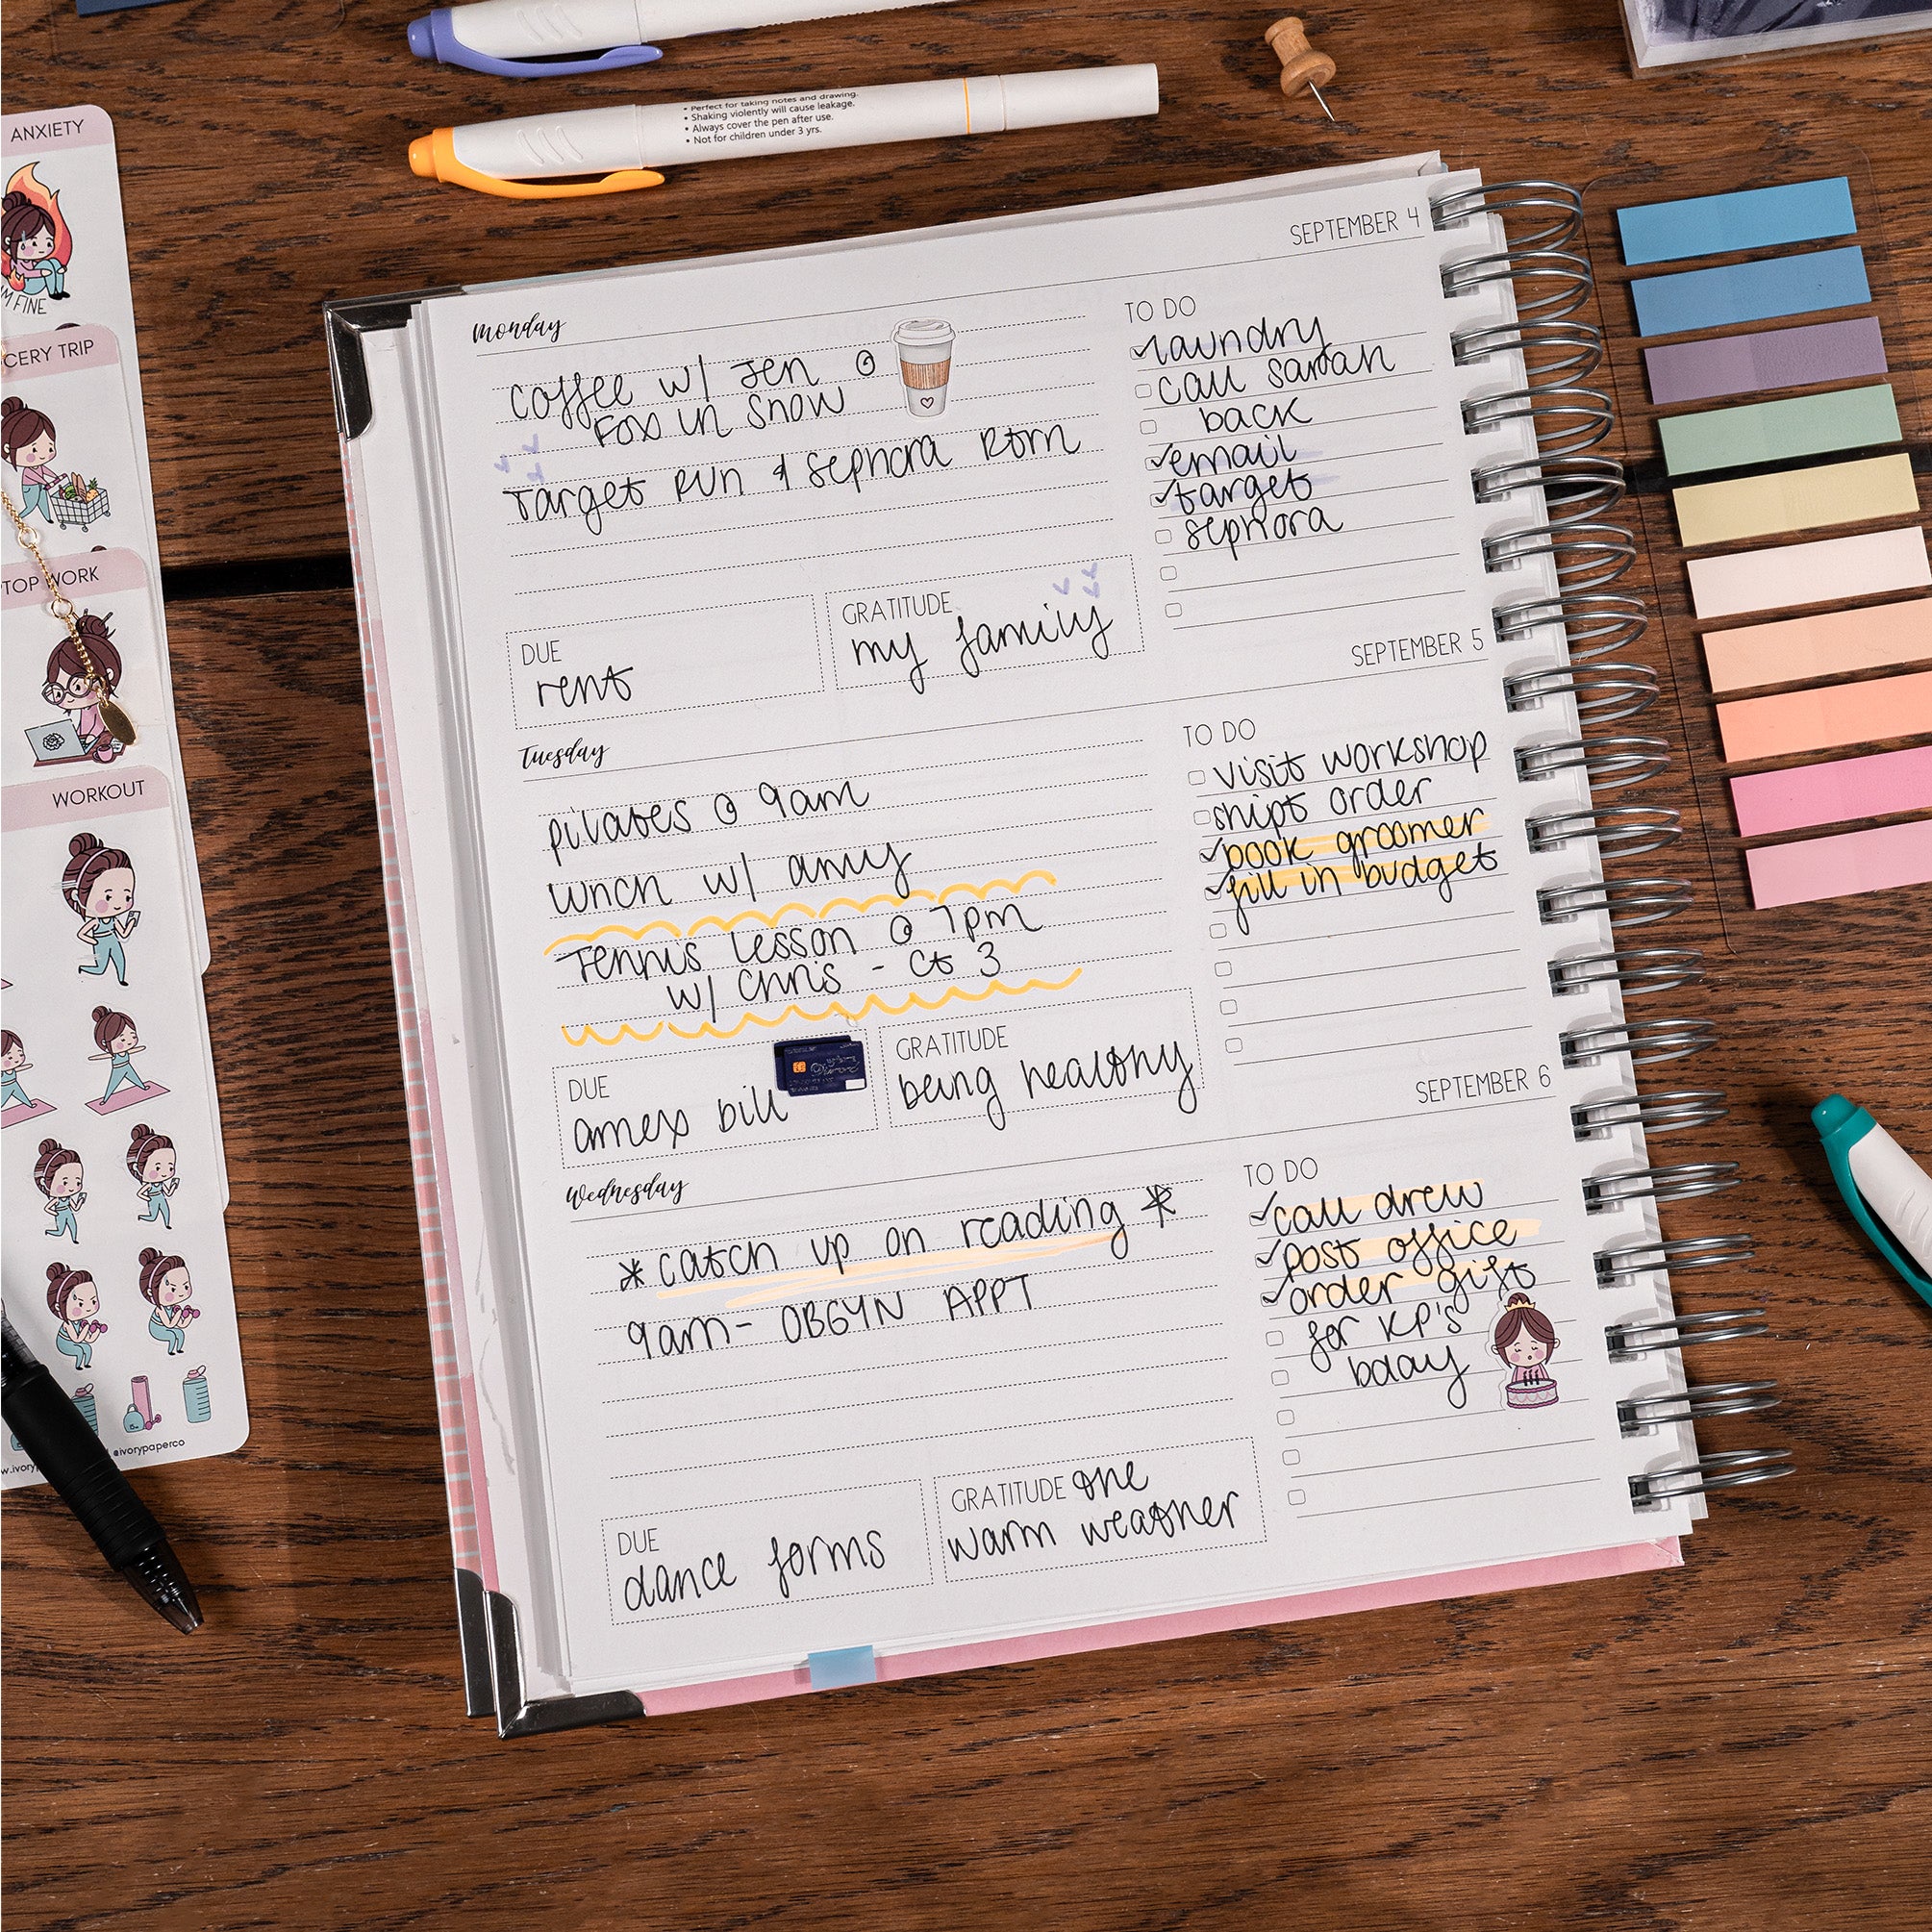 • Perfect for taking notes and drawing.
• Shaking violently will cause leakage.
• Always cover the pen after use.
• Not for children under 3 yrs.
ANXIETY
I'M FINE
CERY TRIP
TOP WORK
WORKOUT
@ivorypaperco
SEPTEMBER 4
Monday
coffee w/ Jen @
Fox in Snow
Target Run & Sephora Rtrn
DUE
rent
GRATITUDE
my family
TO DO
laundry
call sarah
back
email
target
sephora
SEPTEMBER 5
Tuesday
pilates @ 9am
lunch w/ amy
Tennis Lesson @ 7pm
w/ Chris - Ct 3
DUE
amex bill
GRATITUDE
being healthy
TO DO
visit workshop
shipt order
book groomer
fill in budget
SEPTEMBER 6
Wednesday
* catch up on reading *
9am - OBGYN APPT
DUE
dance forms
GRATITUDE the
warm weather
TO DO
call drew
post office
order gift
for KP's
bday